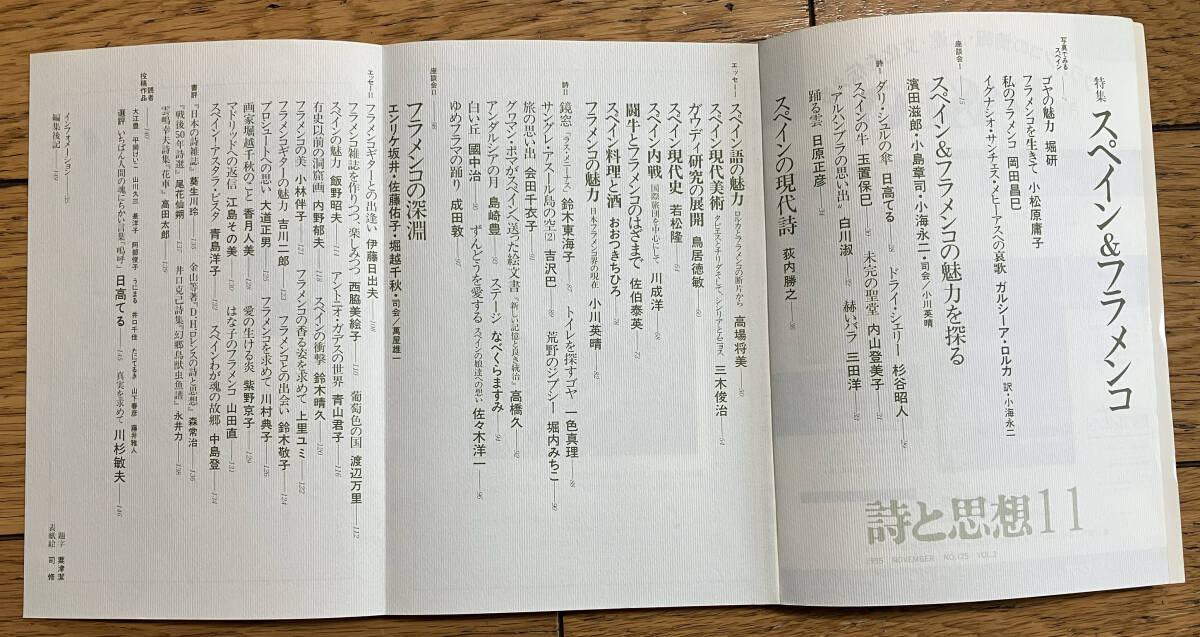 特集 スペイン&フラメンコ
写真でみるスペイン
ゴヤの魅力 堀研
フラメンコを生きて 小松原庸子
私のフラメンコ 岡田昌巳
イグナシオ・サンチェス・メヒーアスへの哀歌 ガルシーア・ロルカ 訳・小海永二
座談会I
スペイン&フラメンコの魅力を探る
濱田滋郎・小島章司・小海永二・司会/小川英晴
詩I
ダリ・シュルの傘 日高てる
ドライ・シェリー 杉谷昭人
スペインの牛 玉置保巳
未完の聖堂 内山登美子
“アルハンブラの思い出” 白川淑
赫いバラ 三田洋
踊る雲 日原正彦
スペインの現代詩 荻内勝之
詩と思想 11
1995 NOVEMBER NO.125 VOL.2
エッセーI
スペイン語の魅力 ロルカとフラメンコの断片から 高場将美
スペイン現代美術 タピエスとチリダそして、シシリアとアモヨス 三木俊治
ガウディ研究の展開 鳥居徳敏
スペイン現代史 若松隆
スペイン内戦 国際旅団を中心にして 川成洋
闘牛とフラメンコのはざまで 佐伯泰英
スペイン料理と酒 おおつきちひろ
フラメンコの魅力 日本フラメンコ界の現在 小川英晴
詩II
鏡窓『ラス・メニーナス』 鈴木東海子
トイレを探すゴヤ 一色真理
サング・アスール島の空(2) 吉沢巴
荒野のジプシー 堀内みちこ
旅の思い出 会田千衣子
グワマン・ポマがスペインへ送った絵文書『新しい記憶と良き統治』 高橋久
アンダルシアの月 島崎豊
ステージ なべくらますみ
白い丘 國中治
ずんどうを愛する スペインの娘達への想い 佐々木洋一
ゆめフラマの踊り 成田敦
座談会II
フラメンコの深淵
エンリケ坂井・佐藤佑子・堀越千秋・司会/萬屋雄一
エッセーII
フラメンコギターとの出逢い 伊藤日出夫
フラメンコ雑誌を作りつつ、楽しみつつ 西脇美絵子
葡萄色の国 渡辺万里
スペインの魅力 飯野昭夫
アントニオ・ガデスの世界 青山君子
有史以前の洞窟画 内野郁夫
スペインの衝撃 鈴木晴久
フラメンコの美 小林伴子
フラメンコの香る姿を求めて 上里ユミ
フラメンコギターの魅力 吉川二郎
フラメンコとの出会い 鈴木敬子
プロシュートへの思い 大道正男
フラメンコを求めて 川村典子
画家堀越千秋のこと 香月人美
愛の生ける炎 紫野京子
マドリッドへの返信 江島その美
はな子のフラメンコ 山田直
スペイン・アスタラ・ビスタ 青島洋子
スペインわが魂の故郷 中島登
書評
『日本の詩雑誌』 葵生川玲
金山等著『D・H・ロレンスの詩と思想』 森常治
『戦後50年詩選』 尾花仙朔
井口克己詩集『幻郷鳥獣虫魚譜』 永井力
雲嶋幸夫詩集『花車』 高田太郎
読者投稿作品
大江豊 平岡けいこ 山川久三 是洋子 阿部俊子 うにまる 井口千佳 たにてるき 山下春彦 藤井雅人
選評 いちばん人間の魂にちかい言葉「嗚呼」 日高てる
真実を求めて 川杉敏夫
インフォメーション
編集後記
題字 粟津潔
表紙絵 司修